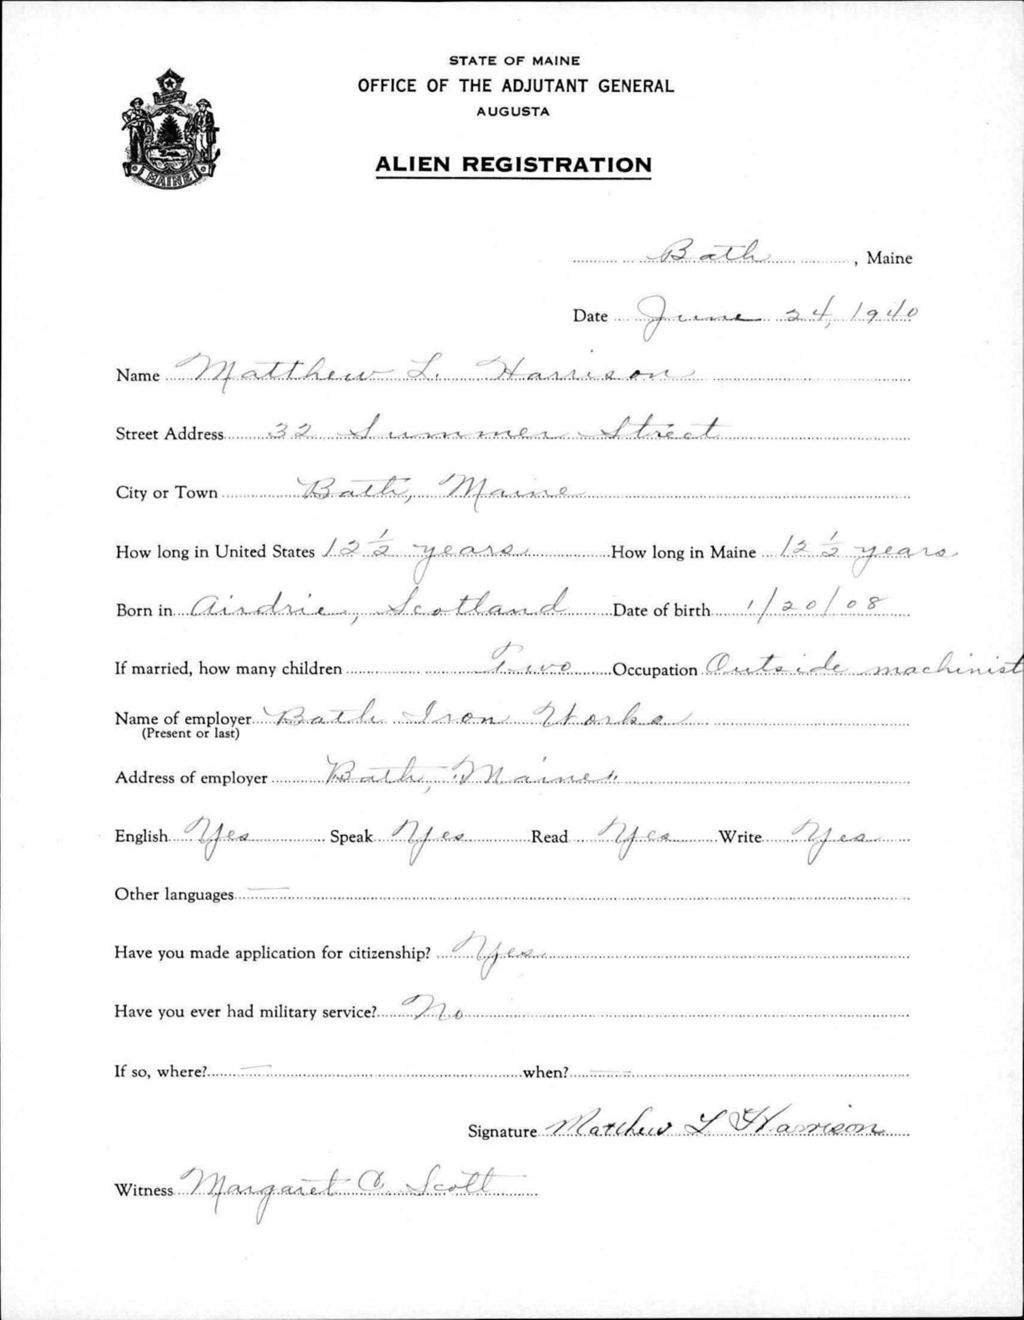 STATE OF MAINE
OFFICE OF THE ADJUTANT GENERAL
AUGUSTA
ALIEN REGISTRATION
MAINE
Bath, Maine
Date June 24, 1940
Name Matthew L. Harrison
Street Address 32 Summer Street
City or Town Bath, Maine
How long in United States 12 1/2 years How long in Maine 12 1/2 years
Born in Airdrie, Scotland Date of birth 1/20/08
If married, how many children Two Occupation Outside machinist
Name of employer Bath Iron Works
(Present or last)
Address of employer Bath, Maine
English Yes Speak Yes Read Yes Write Yes
Other languages —
Have you made application for citizenship? Yes
Have you ever had military service? No
If so, where? — when? —
Signature Matthew L Harrison
Witness Margaret C. Scott